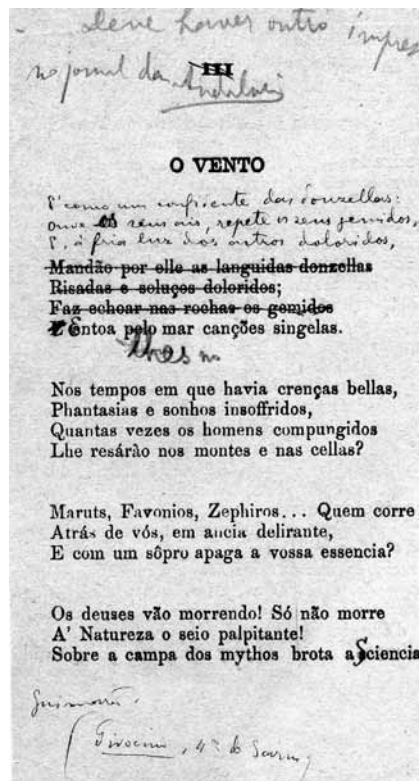 Deve haver outro impres
no jornal da
III
O VENTO
E' como um confidente das donzellas:
Ouve os seus ais, repete os seus gemidos,
E, á fria luz dos astros doloridos,
Mandão por elle as languidas donzellas
Risadas e soluços doloridos;
Faz echoar nas rochas os gemidos
E Entoa pelo mar canções singelas.
lhes no
Nos tempos em que havia crenças bellas,
Phantasias e sonhos insoffridos,
Quantas vezes os homens compungidos
Lhe resárão nos montes e nas cellas?
Maruts, Favonios, Zephiros... Quem corre
Atrás de vós, em ancia delirante,
E com um sôpro apaga a vossa essencia?
Os deuses vão morrendo! Só não morre
A' Natureza o seio palpitante!
Sobre a campa dos mythos brota a Sciencia
Guimarães.